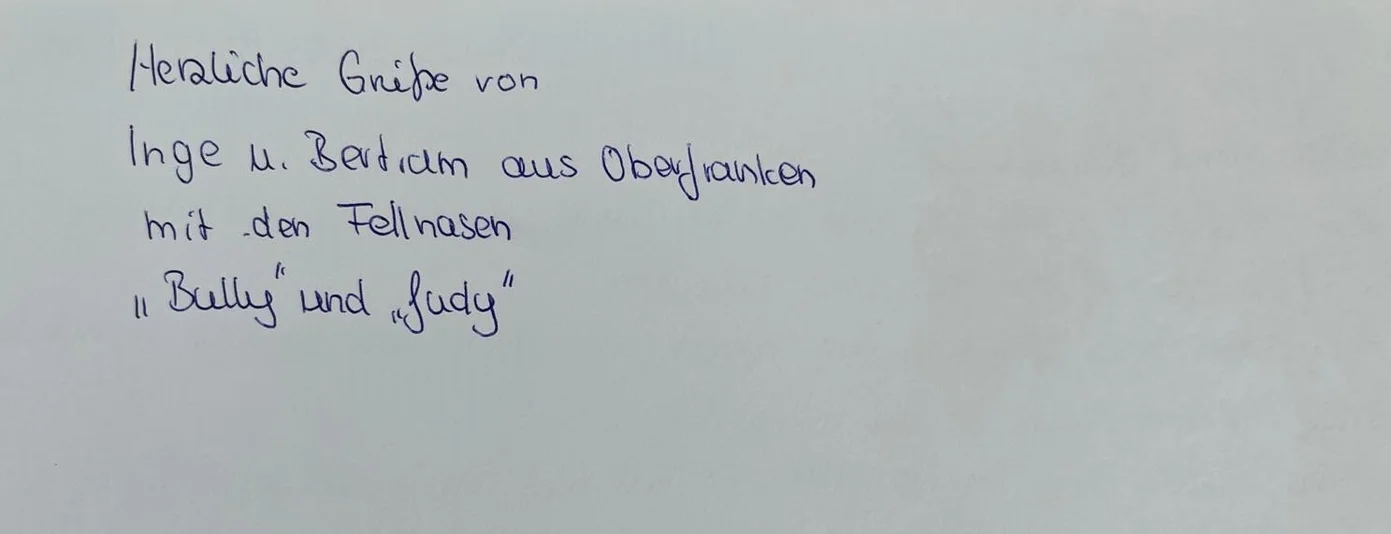 Herzliche Grüße von
Inge u. Bertram aus Oberfranken
mit den Fellnasen
„Bully“ und „Judy“